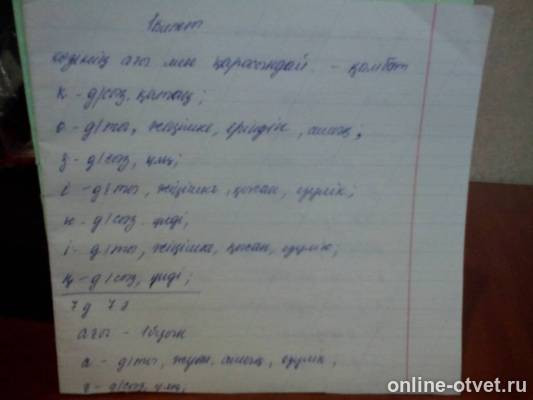 1 билет
көзінің ағы мен қарасындай – қымбат
к – д/сыз, қатаң;
ө – д/ты, жіңішке, еріндік, ашық,
з – д/сыз, ұяң;
і – д/ты, жіңішке, қысаң, езулік;
н – д/сыз үнді,
і – д/ты, жіңішке, қысаң, езулік;
ң – д/сыз, үнді;
7 д 7 ә
ағы –
а – д/ты, жуан, ашық, езулік,
ғ – д/сыз, ұяң;
online-otvet.ru